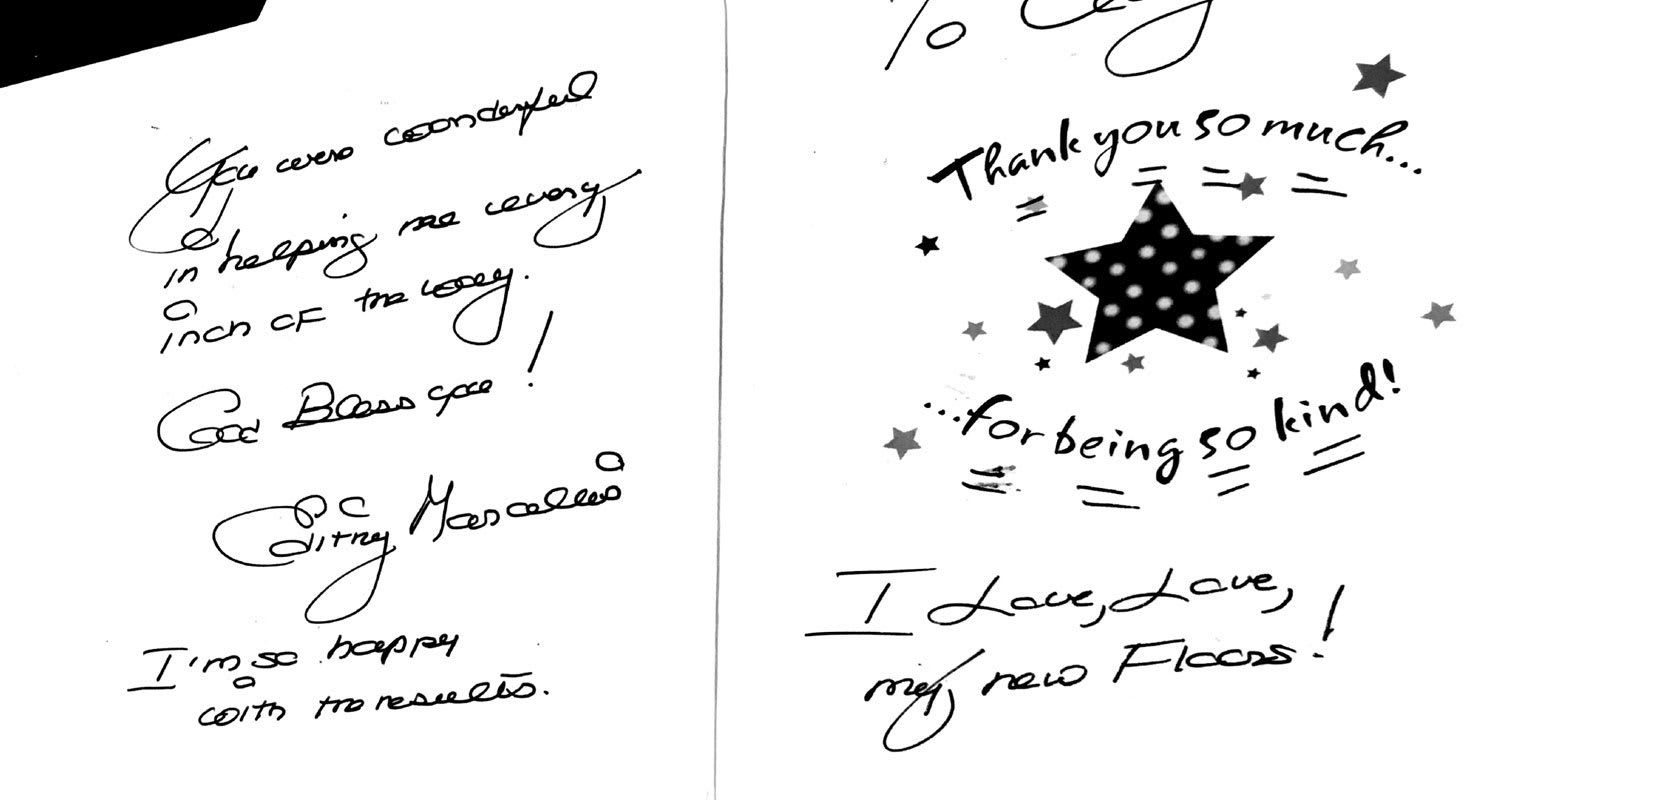 You were wonderful
in helping me every
inch of the way.
God Bless you!
I'm so happy
with the results.
To
Thank you so much...
...for being so kind!
I Love, Love,
my new Floors!